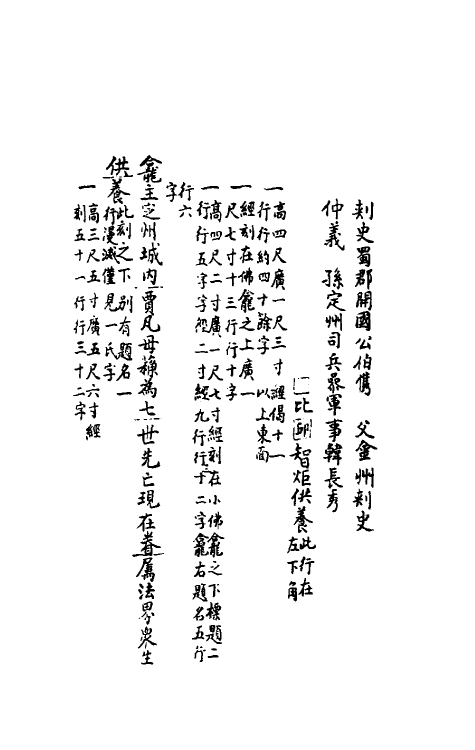 刺史蜀郡開國公伯儁　父金州刺史
仲義　孫定州司兵叅軍事韓長秀
□比邱智炬供養此行在
左下角
一高四尺廣一尺三寸經偈十一
行行約四十餘字　以上東面
一經刻在佛龕之上廣一
尺七寸十三行行十字
一高四尺二寸廣一尺七寸經刻在小佛龕之下標題二
行行五字字徑二寸經九行行三十二字龕右題名五行
行六
字
龕主定州城内賈凡母蘇為七世先亡現在眷屬法界衆生
供養此刻之下別有題名一
行漫滅僅見一氏字
一高三尺五寸廣五尺六寸經
刻五十一行行三十二字